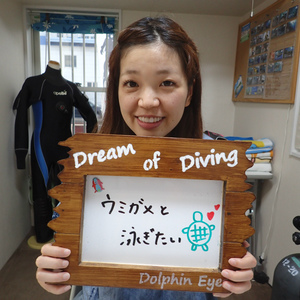 Dream of Diving
ウミガメと
泳ぎたい
Dolphin Eye